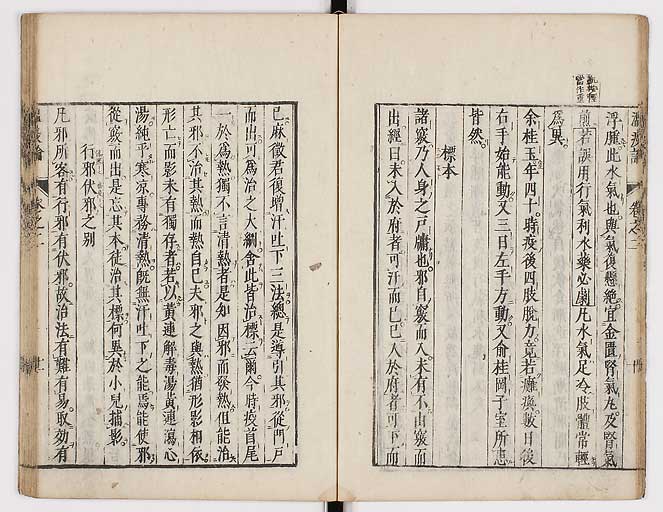 浮腫此水氣也與氣復懸絕宜金匱腎氣丸及腎氣
煎若誤用行氣利水藥必劇凡水氣足冷肢體常輕
爲異
余桂玉年四十時疫後四肢脫力竟若癱瘓數日後
右手始能動又三日左手方動又俞桂岡子室所患
皆然
標本
諸竅乃人身之戸牖也邪自竅而入未有不由竅而
出經曰未入於府者可汗而已已入於府者可下而
已麻徵君復增汗吐下三法總是導引其邪從門戸
而出可爲治之大綱舍此皆治標云爾今時疫首尾
一於爲熱獨不言清熱者是知因邪而發熱但能治
其邪不治其熱而熱自已夫邪之與熱猶形影相依
形亡而影未有獨存者若以黃連解毒湯黃連瀉心
湯純乎寒凉專務清熱既無汗吐下之能焉能使邪
從竅而出是忘其本徒治其標何異於小兒捕影
行邪伏邪之别
凡邪所客有行邪有伏邪故治法有難有易取効有